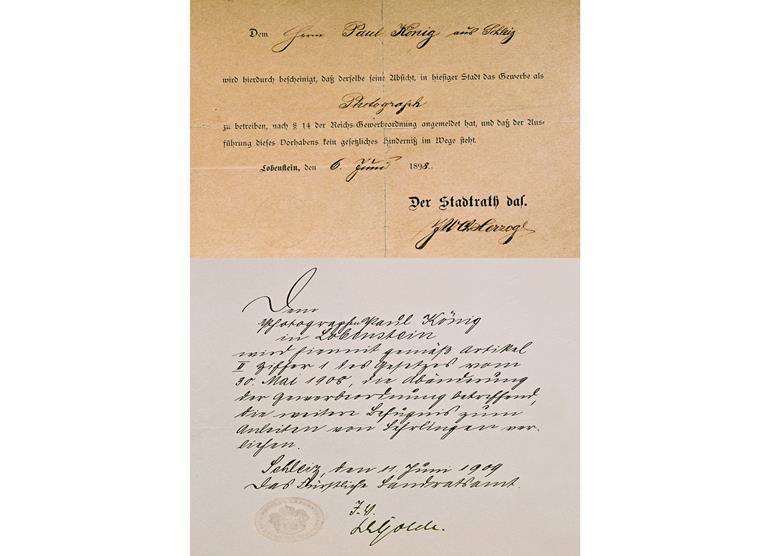 Dem Herrn Paul König aus Schleiz
wird hierdurch bescheinigt, daß derselbe seine Absicht, in hiesiger Stadt das Gewerbe als
Photograph
zu betreiben, nach § 14 der Reichs-Gewerbeordnung angemeldet hat, und daß der Aus-
führung dieses Vorhabens kein gesetzliches Hinderniß im Wege steht.
Lobenstein, den 6. Juni 1898.
Der Stadtrath das.
Herzog
Dem
Photographen Paul König
in Lobenstein
wird hiermit gemäß Artikel
II Ziffer 1 des Gesetzes vom
30. Mai 1908, die Abänderung
der Gewerbeordnung betreffend,
die weitere Befugnis zum
Anleiten von Lehrlingen ver-
liehen.
Schleiz, den 11. Juni 1909
Das Fürstliche Landratsamt.
J. V.